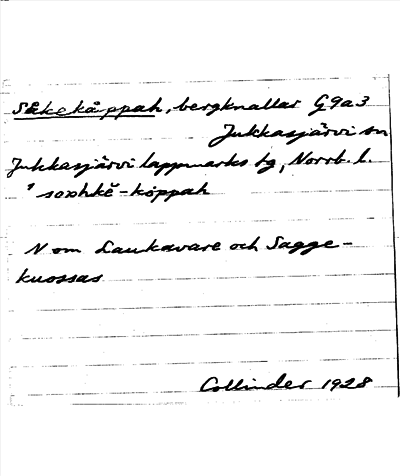 Såkekåppah, bergknallar G9a3
Jukkasjärvi sn
Jukkasjärvi lappmarks tg, Norrb. l.
N om Laukavare och Sagge-
kuossas
Collinder 1928